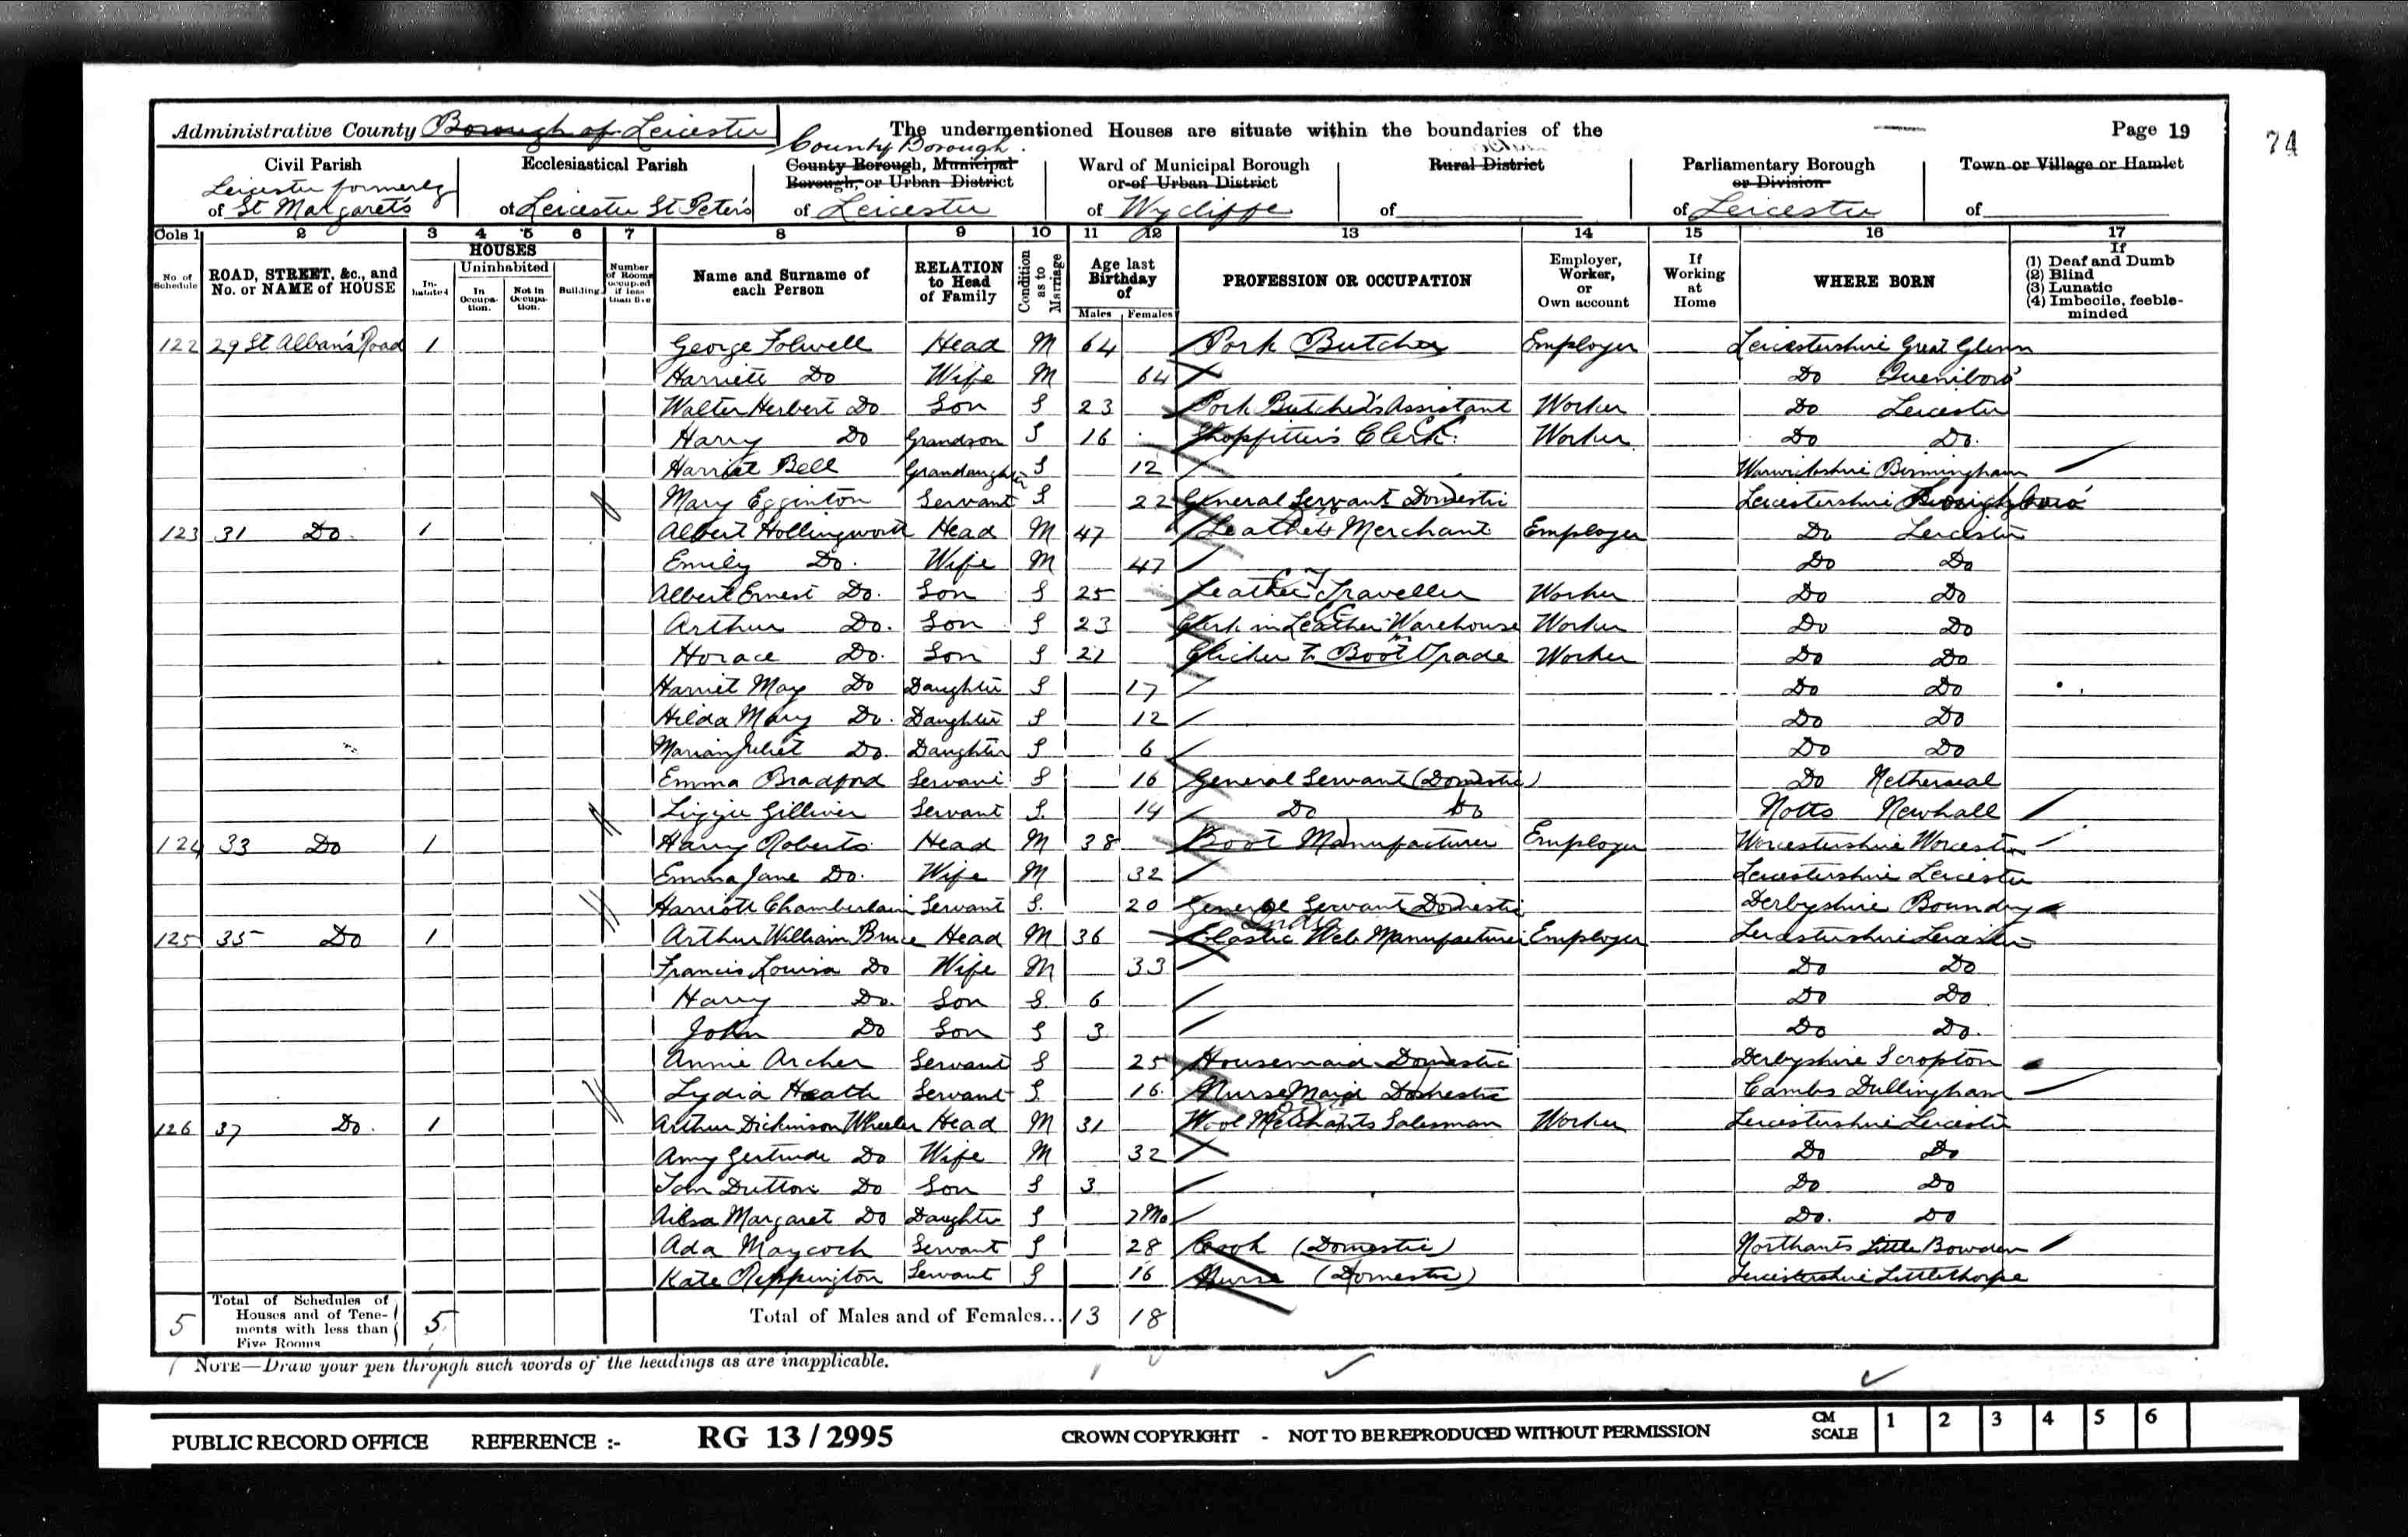 Administrative County Borough of Leicester The undermentioned Houses are situate within the boundaries of the Page 19
74
County Borough
Civil Parish Ecclesiastical Parish County Borough, Municipal Borough, or Urban District Ward of Municipal Borough or of Urban District Rural District Parliamentary Borough or Division Town or Village or Hamlet
Leicester formerly
of St Margaret's of Leicester St Peter's of Leicester of Wycliffe of of Leicester of
Cols 1 2 3 4 5 6 7 8 9 10 11 12 13 14 15 16 17
No. of Schedule ROAD, STREET, &c., and No. or NAME of HOUSE HOUSES In-habited Uninhabited In Occupa-tion. Not in Occupa-tion. Building Number of Rooms occupied if less than five Name and Surname of each Person RELATION to Head of Family Condition as to Marriage Age last Birthday of Males Females PROFESSION OR OCCUPATION Employer, Worker, or Own account If Working at Home WHERE BORN If (1) Deaf and Dumb (2) Blind (3) Lunatic (4) Imbecile, feeble-minded
122 29 St Alban's Road 1 George Folwell Head M 64 Pork Butcher Employer Leicestershire Great Glenn
Harriett Do Wife M 64 Do Queniboro'
Walter Herbert Do Son S 23 Pork Butcher's Assistant Worker Do Leicester
Harry Do Grandson S 16 Shopfitter's Clerk Worker Do Do.
Harriet Bell Grandaughter S 12 Warwickshire Birmingham
Mary Egginton Servant S 22 General Servant Domestic Leicestershire
123 31 Do. 1 Albert Hollingworth Head M 47 Leather Merchant Employer Do Leicester
Emily Do. Wife M 47 Do Do
Albert Ernest Do. Son S 25 Leather Traveller Worker Do Do
Arthur Do. Son S 23 Clerk in Leather Warehouse Worker Do Do
Horace Do. Son S 21 Clicker Boot Trade Worker Do Do
Harriet May Do Daughter S 17 Do Do
Hilda Mary Do. Daughter S 12 Do Do
Marian Juliet Do. Daughter S 6 Do Do
Emma Bradford Servant S 16 General Servant (Domestic) Do Netherseal
Lizzie Gilliver Servant S. 14 Do Do Notts Newhall
124 33 Do 1 Harry Roberts Head M 38 Boot Manufacturer Employer Worcestershire Worcester
Emma Jane Do. Wife M 32 Leicestershire Leicester
Harriott Chamberlain Servant S. 20 General Servant Domestic Derbyshire Boundry
125 35 Do 1 Arthur William Bruce Head M 36 Elastic Web Manufacturer Employer Leicestershire Leicester
Francis Louisa Do Wife M 33 Do Do
Harry Do. Son S. 6 Do Do
John Do Son S 3 Do Do.
Annie Archer Servant S 25 Housemaid Domestic Derbyshire Scropton
Lydia Heath Servant S. 16 Nurse Maid Domestic Cambs Dullingham
126 37 Do. 1 Arthur Dickinson Wheeler Head M 31 Wool Merchants Salesman Worker Leicestershire Leicester
Amy Gertrude Do Wife M 32 Do Do
Ian Dutton Do Son S 3 Do Do
Ailsa Margaret Do Daughter S 7 Mo Do. Do
Ada Maycock Servant S 28 Cook (Domestic) Northants Little Bowden
Kate Reppington Servant S 16 Nurse (Domestic) Leicestershire Littlethorpe
5 Total of Schedules of Houses and of Tene-ments with less than Five Rooms 5 Total of Males and of Females... 13 18
NOTE—Draw your pen through such words of the headings as are inapplicable.
PUBLIC RECORD OFFICE REFERENCE :- RG 13 / 2995 CROWN COPYRIGHT - NOT TO BE REPRODUCED WITHOUT PERMISSION CM SCALE 1 2 3 4 5 6